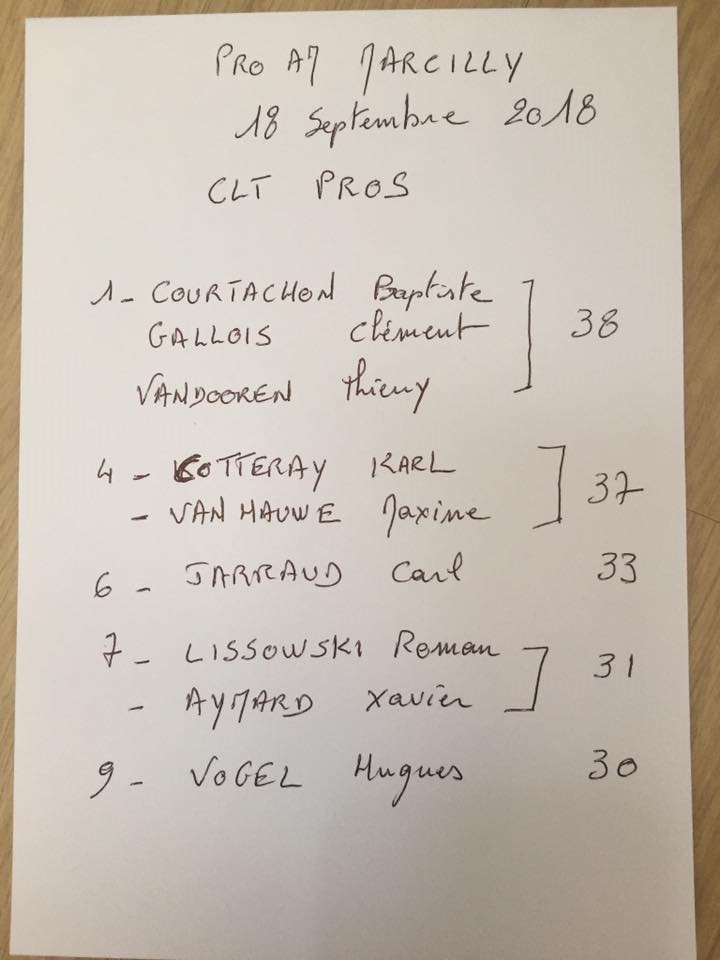 PRO AM MARCILLY
18 Septembre 2018
CLT PROS
1 - COURTACHON Baptiste
GALLOIS Clément 38
VANDOOREN Thierry
4 - COTTERAY KARL
- VAN HAUWE Maxime 37
6 - JARRAUD Carl 33
7 - LISSOWSKI Roman
- AYMARD Xavier 31
9 - VOGEL Hugues 30